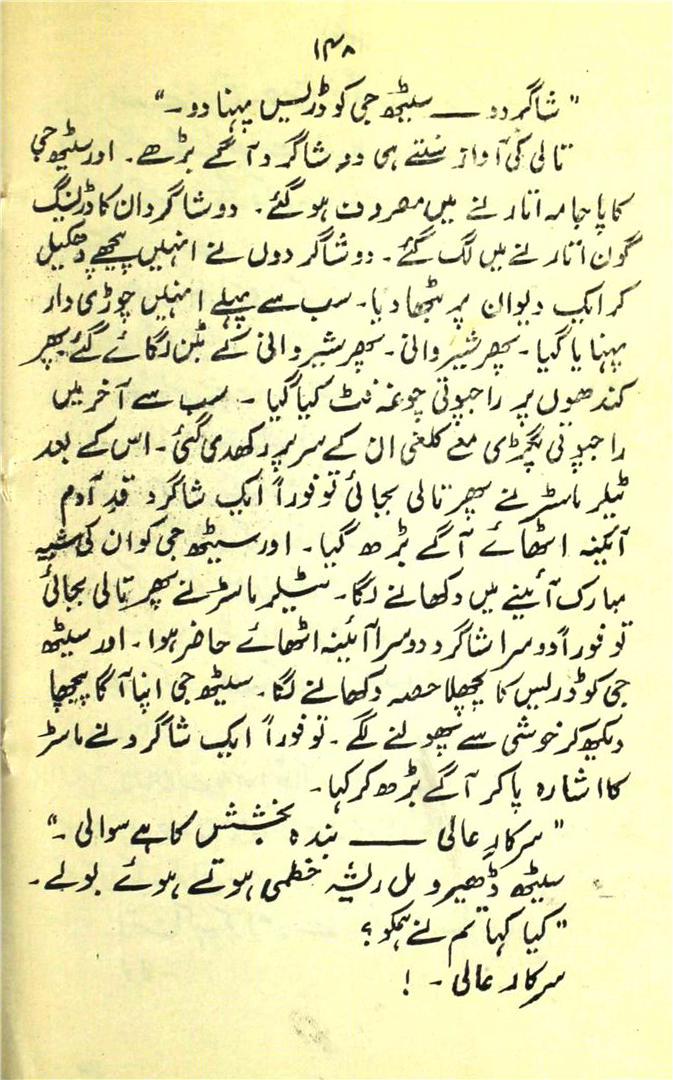 ۱۴۸
"شاگردو — سیٹھ جی کو ڈریس پہنا دو۔"
تالی کی آواز سنتے ہی دو شاگرد آگے بڑھے۔ اور سیٹھ جی
کا پاجامہ اتارنے میں مصروف ہو گئے۔ دو شاگرد ان کا ڈرلینگ
گون اتارنے میں لگ گئے۔ دو شاگردوں نے انہیں پیچھے دھکیل
کر ایک دیوان پر بٹھا دیا۔ سب سے پہلے انہیں چوڑی دار
پہنایا گیا۔ پھر شیروانی۔ پھر شیروانی کے بٹن لگائے گئے پھر
کندھوں پر راجپوتی چوغہ فٹ کیا گیا ۔ سب سے آخر میں
راجپوتی پگڑی مع کلغی ان کے سر پر رکھدی گئی۔ اس کے بعد
ٹیلر ماسٹر نے پھر تالی بجائی تو فوراً ایک شاگرد قدِ آدم
آئینہ اٹھائے آگے بڑھ گیا۔ اور سیٹھ جی کو ان کی شبیہ
مبارک آئینے میں دکھانے لگا۔ ٹیلر ماسٹر نے پھر تالی بجائی
تو فوراً دوسرا شاگرد دوسرا آئینہ اٹھائے حاضر ہوا۔ اور سیٹھ
جی کو ڈریس کا پچھلا حصہ دکھانے لگا۔ سیٹھ جی اپنا آگا پیچھا
دیکھ کر خوشی سے پھولنے لگے۔ تو فوراً ایک شاگرد نے ماسٹر
کا اشارہ پا کر آگے بڑھ کر کہا۔
"سرکارِ عالی — بندہ بخشش کا ہے سوالی۔"
سیٹھ ڈھیرومل ریشہ خطمی ہوتے ہوئے بولے۔
"کیا کہا تم نے ہمکو؟
سرکار عالی ۔ !